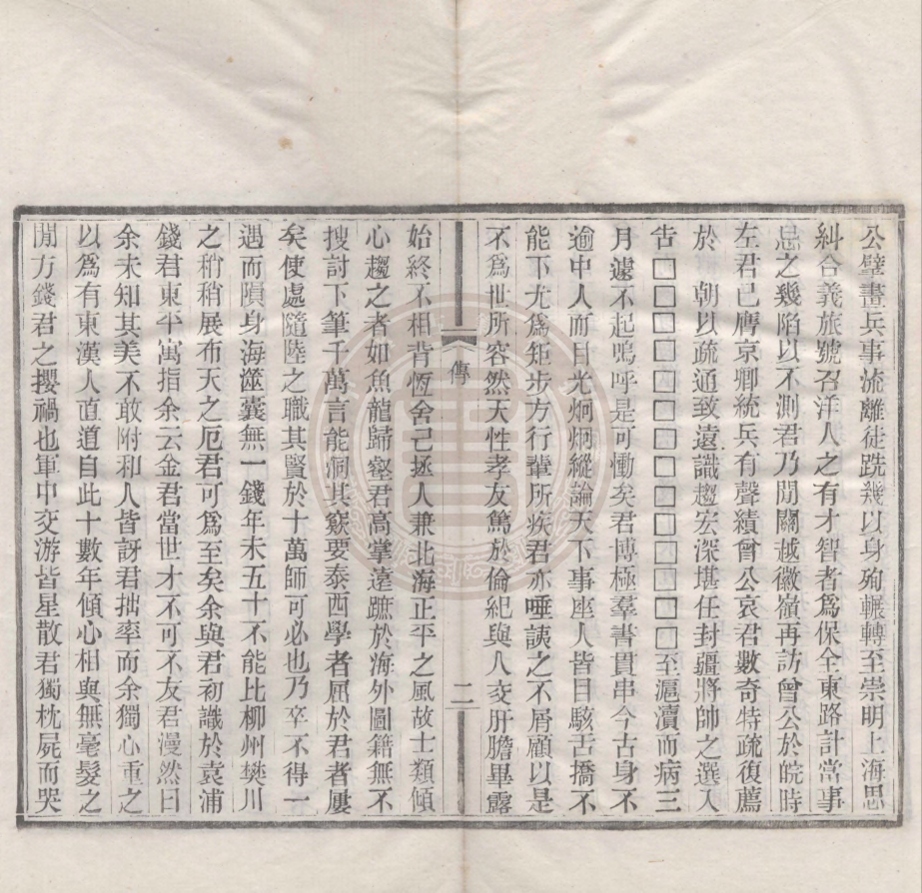 公擘畫兵事流離徒跣幾以身殉輾轉至崇明上海思
糾合義旅號召洋人之有才智者爲保全東路計當事
忌之幾陷以不測君乃閒關越徽嶺再訪曾公於皖時
左君已膺京卿統兵有聲績曾公哀君數奇特疏復薦
於 朝以疏通致遠識趨宏深堪任封疆將帥之選入
告□□□□□□□□□□□□□□至滬瀆而病三
月遽不起嗚呼是可慟矣君博極羣書貫串今古身不
逾中人而目光炯炯縱論天下事座人皆目駭舌撟不
能下尤爲矩步方行輩所疾君亦唾謑之不屑顧以是
不爲世所容然天性孝友篤於倫紀與人交肝膽畢露
傳
二
始終不相背恆舍己拯人兼北海正平之風故士類傾
心趨之者如魚龍歸壑君高掌遠蹠於海外圖籍無不
搜討下筆千萬言能洞其窾要泰西學者屈於君者屢
矣使處隨陸之職其賢於十萬師可必也乃卒不得一
遇而隕身海澨囊無一錢年未五十不能比柳州樊川
之稍稍展布天之厄君可爲至矣余與君初識於袁浦
錢君東平寓指余云金君當世才不可不友君漫然曰
余未知其美不敢附和人皆訝君拙率而余獨心重之
以爲有東漢人直道自此十數年傾心相與無毫髮之
閒方錢君之攖禍也軍中交游皆星散君獨枕屍而哭